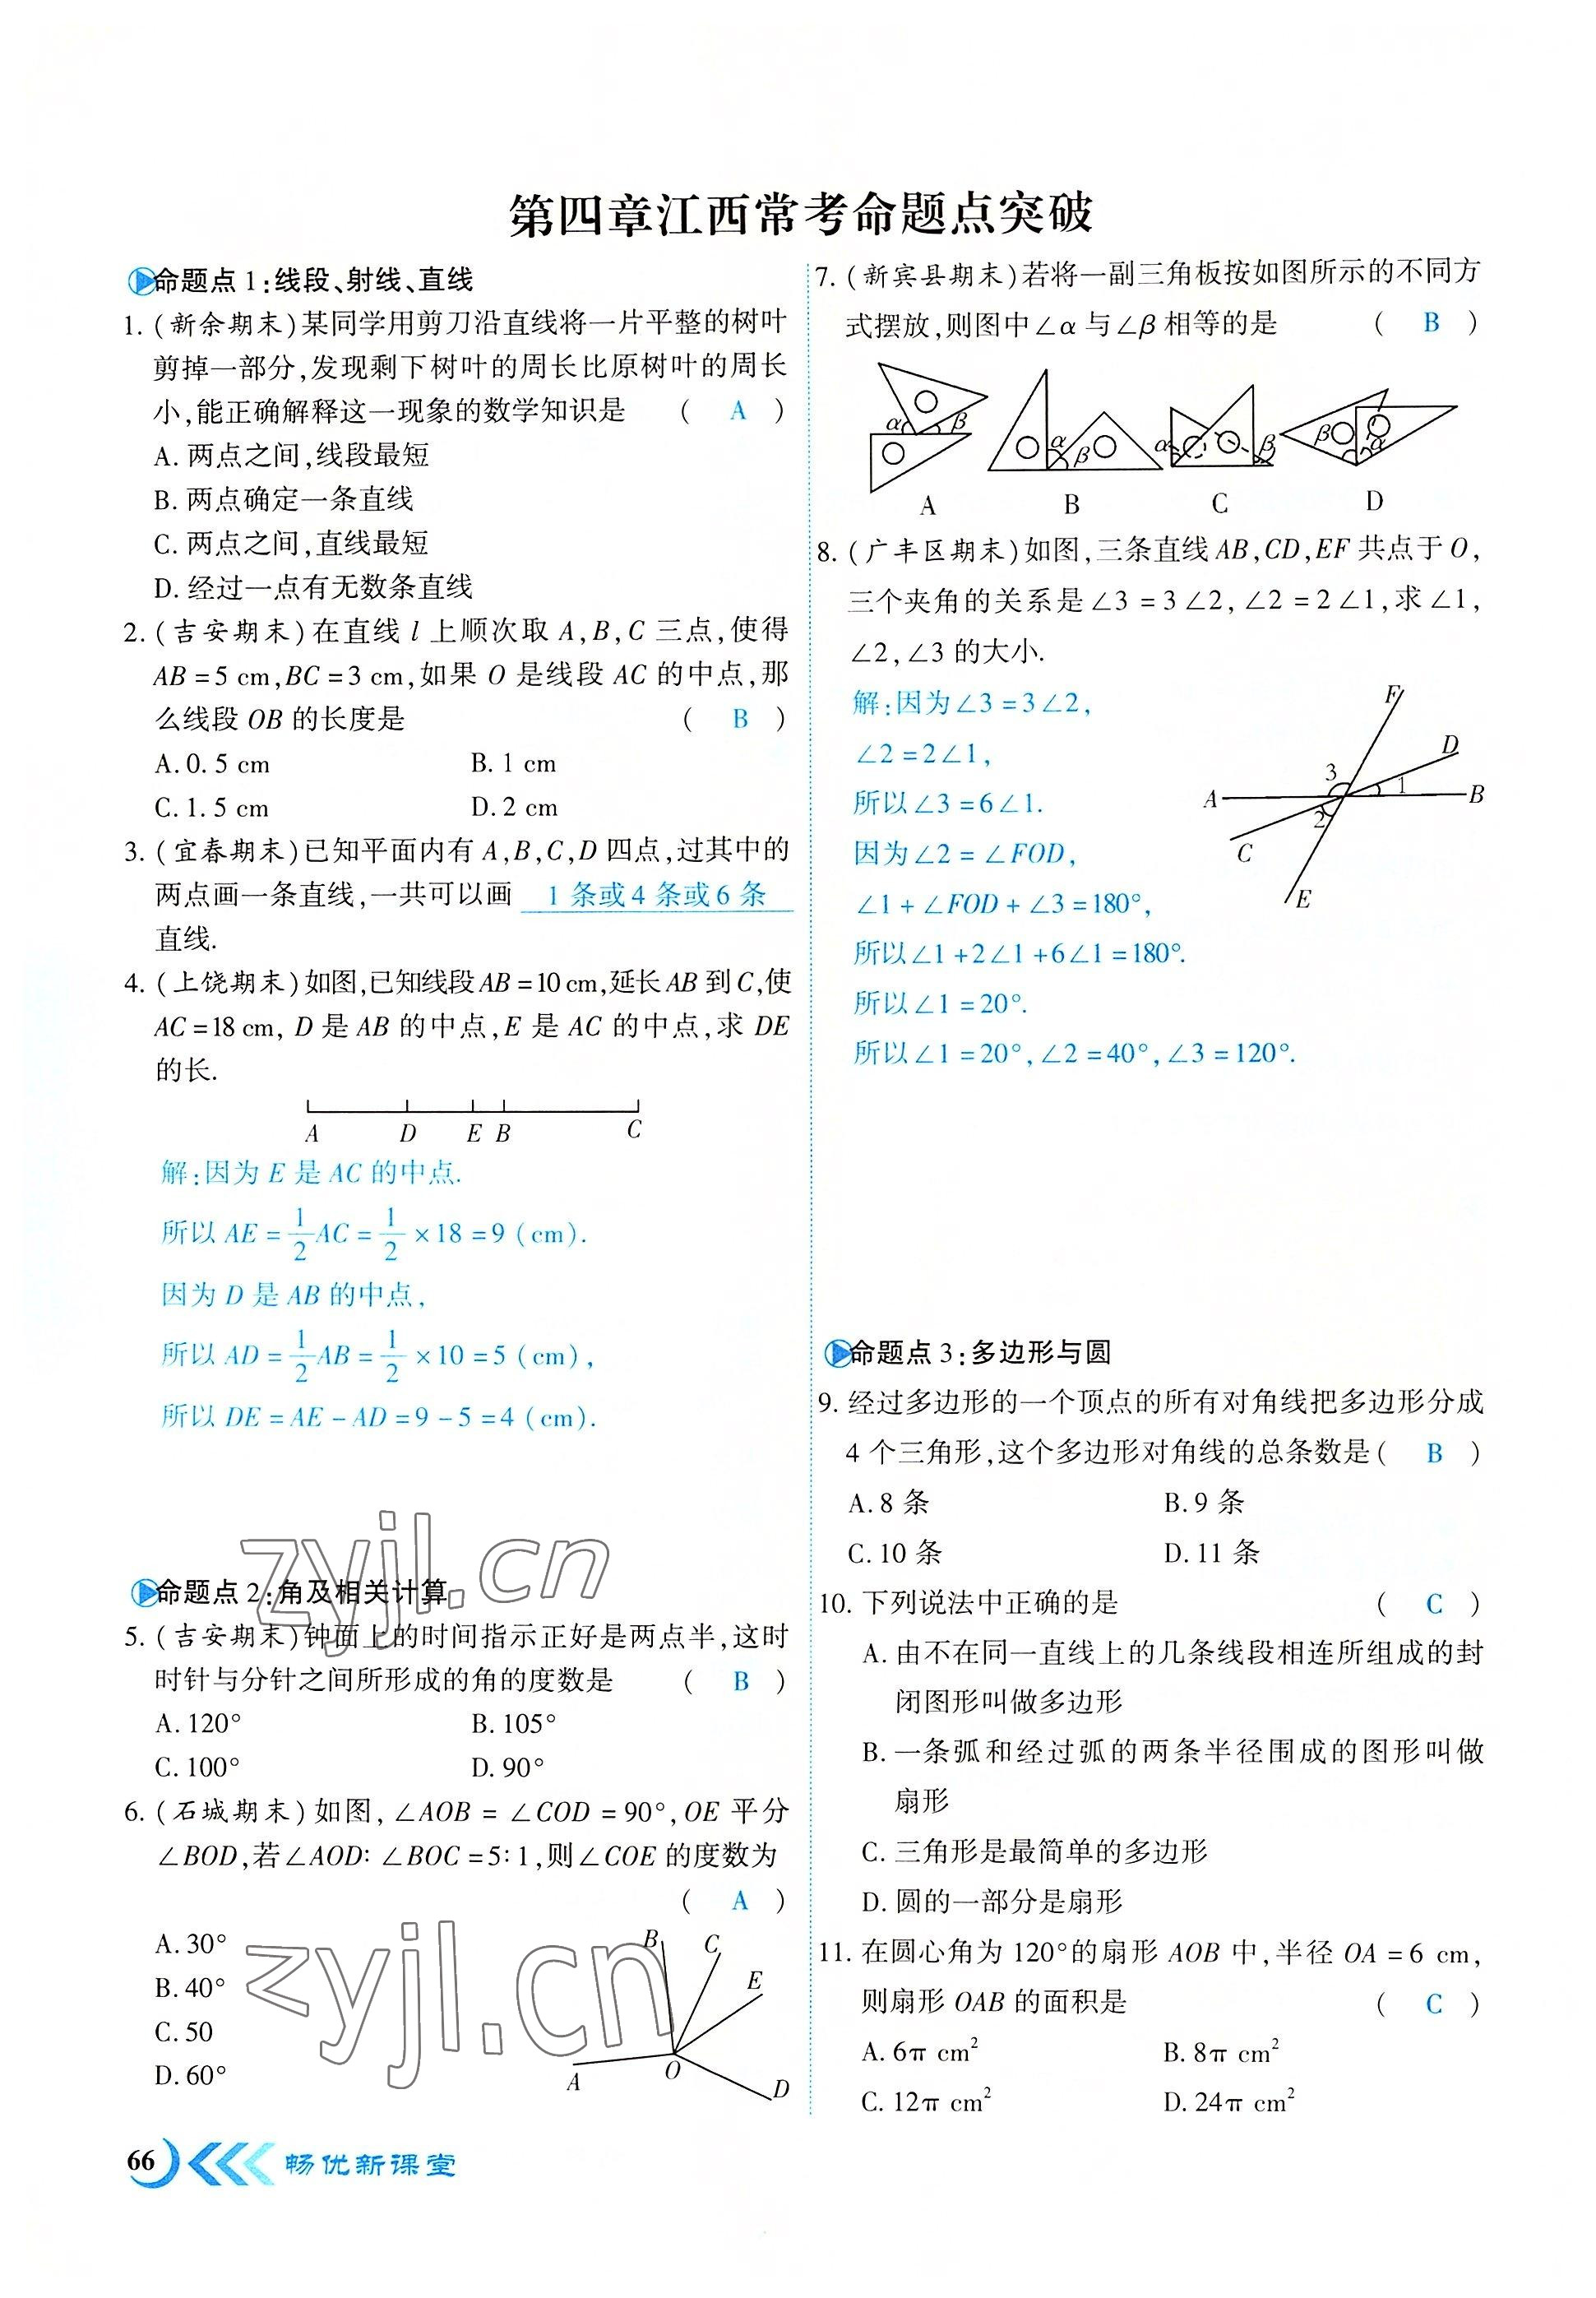 第四章江西常考命题点突破
命题点1:线段、射线、直线
1. (新余期末)某同学用剪刀沿直线将一片平整的树叶
剪掉一部分,发现剩下树叶的周长比原树叶的周长
小,能正确解释这一现象的数学知识是 ( A )
A. 两点之间,线段最短
B. 两点确定一条直线
C. 两点之间,直线最短
D. 经过一点有无数条直线
2. (吉安期末)在直线 l 上顺次取 A,B,C 三点,使得
AB=5 cm,BC=3 cm,如果 O 是线段 AC 的中点,那
么线段 OB 的长度是 ( B )
A. 0.5 cm B. 1 cm
C. 1.5 cm D. 2 cm
3. (宜春期末)已知平面内有 A,B,C,D 四点,过其中的
两点画一条直线,一共可以画 1 条或 4 条或 6 条
直线.
4. (上饶期末)如图,已知线段 AB=10 cm,延长 AB 到 C,使
AC=18 cm, D 是 AB 的中点,E 是 AC 的中点,求 DE
的长.
A D E B C
解:因为 E 是 AC 的中点.
所以 AE=1/2AC=1/2×18=9(cm).
因为 D 是 AB 的中点,
所以 AD=1/2AB=1/2×10=5(cm),
所以 DE=AE-AD=9-5=4(cm).
zyjl.cn
命题点2:角及相关计算
5. (吉安期末)钟面上的时间指示正好是两点半,这时
时针与分针之间所形成的角的度数是 ( B )
A. 120° B. 105°
C. 100° D. 90°
6. (石城期末)如图,∠AOB=∠COD=90°,OE 平分
∠BOD,若∠AOD:∠BOC=5:1,则∠COE 的度数为
( A )
A. 30°
B. 40°
C. 50
D. 60°
B C E
A O D
zyjl.cn
66 畅优新课堂
7. (新宾县期末)若将一副三角板按如图所示的不同方
式摆放,则图中∠α与∠β相等的是 ( B )
α β α β α β β α
A B C D
8. (广丰区期末)如图,三条直线 AB,CD,EF 共点于 O,
三个夹角的关系是∠3=3∠2,∠2=2∠1,求∠1,
∠2,∠3 的大小.
解:因为∠3=3∠2,
∠2=2∠1,
所以∠3=6∠1.
因为∠2=∠FOD,
∠1+∠FOD+∠3=180°,
所以∠1+2∠1+6∠1=180°.
所以∠1=20°.
所以∠1=20°,∠2=40°,∠3=120°.
F
D
3 1
A B
2
C
E
命题点3:多边形与圆
9. 经过多边形的一个顶点的所有对角线把多边形分成
4 个三角形,这个多边形对角线的总条数是( B )
A. 8 条 B. 9 条
C. 10 条 D. 11 条
10. 下列说法中正确的是 ( C )
A. 由不在同一直线上的几条线段相连所组成的封
闭图形叫做多边形
B. 一条弧和经过弧的两条半径围成的图形叫做
扇形
C. 三角形是最简单的多边形
D. 圆的一部分是扇形
11. 在圆心角为 120°的扇形 AOB 中,半径 OA=6 cm,
则扇形 OAB 的面积是 ( C )
A. 6π cm² B. 8π cm²
C. 12π cm² D. 24π cm²